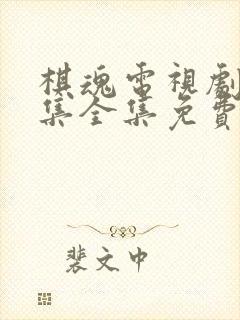 棋魂電視劇
集全集免費
裴文中